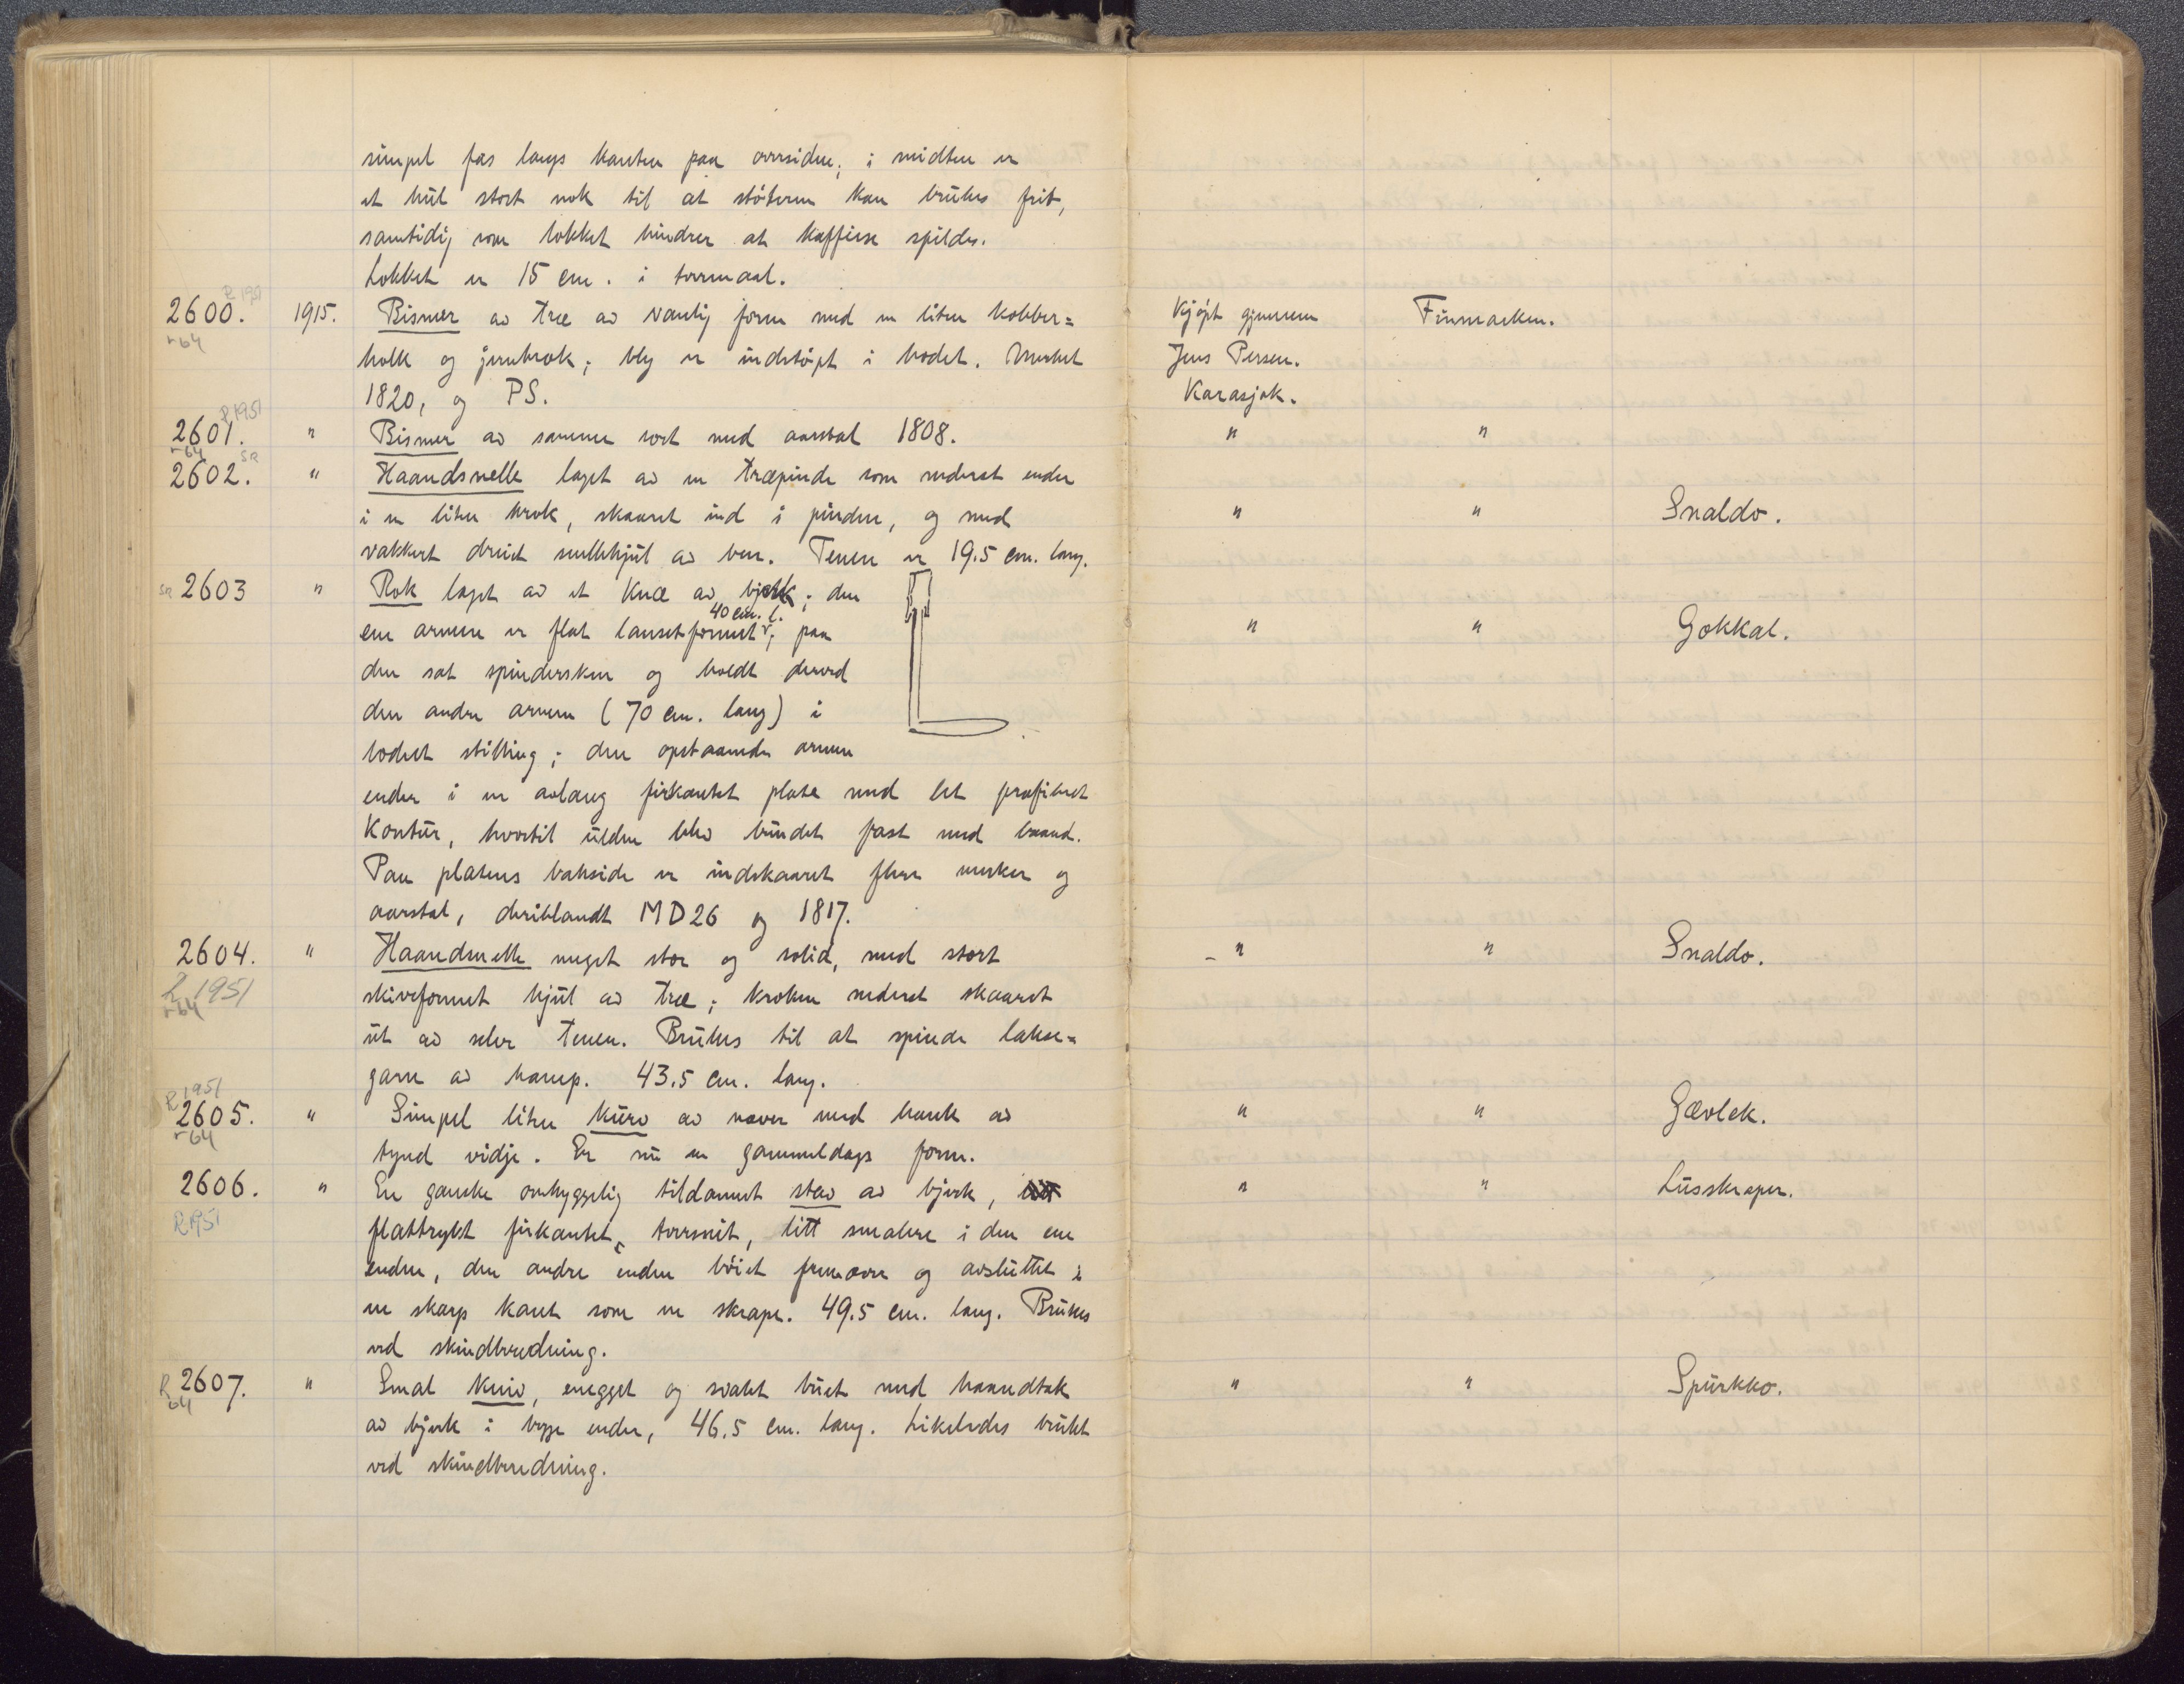 simpel fas langs kanten paa oversiden; i midten er
et hul stort nok til at støteren kan brukes frit,
samtidig som lokket hindrer at kaffien spildes.
Lokket er 15 cm. i tverrmaal.
R 1951
2600. 1915. Bismer av træ av vanlig form med en liten kobber= Kjøpt gjennem Finmarken.
r 64
holk og jernkrok; bly er indstøpt i hodet. Merket Jens Persen.
1820, og PS. Karasjok.
R 1951
2601. " Bismer av samme sort med aarstal 1808. " "
r 64 sa
2602. " Haandsnelle laget av en træpinde som nederst ender
i en liten krok, skaaret ind i pinden, og med " " Snaldo.
vakkert dreiet snellehjul av ben. Tenen er 19.5 cm. lang.
sa 2603 " Rok laget av et kne av bjerk; den
40 cm. l.
ene armen er flat lansetformet, paa " " Gokkal.
den sat spindersken og holdt derved
den andre armen (70 cm. lang) i
lodret stilling; den opstaaende armen
ender i en avlang firkantet plate med let profilert
Kontur, hvortil ulden blev bundet fast med baand.
Paa platens bakside er indskaaret flere merker og
aarstal, deriblandt MD26 og 1817.
2604. " Haandsnelle meget stor og solid, med stort " " Snaldo.
R 1951
r 64
skiveformet hjul av træ; kroken nederst skaaret
ut av selve tenen. Brukes til at spinde lakse=
garn av hamp. 43.5 cm. lang.
R 1951
2605. " Simpel liten kurv av never med hank av " " Gævlek.
r 64
tynd vidje. Er nu en gammeldags form.
2606. " En ganske omhyggelig tildannet stav av bjerk, " " Lusskaper.
R 1951
flattrykt firkantet tverrsnit, litt smalere i den ene
enden, den andre enden bøiet fremover og avsluttet i
en skarp kant som en skrape. 49.5 cm. lang. Brukes
ved skindberedning.
R 2607. " Smal kniv, enegget og svakt buet med haandtak " " Spurkko.
64
av bjerk i begge ender, 46.5 cm. lang. Likeledes brukt
ved skindberedning.